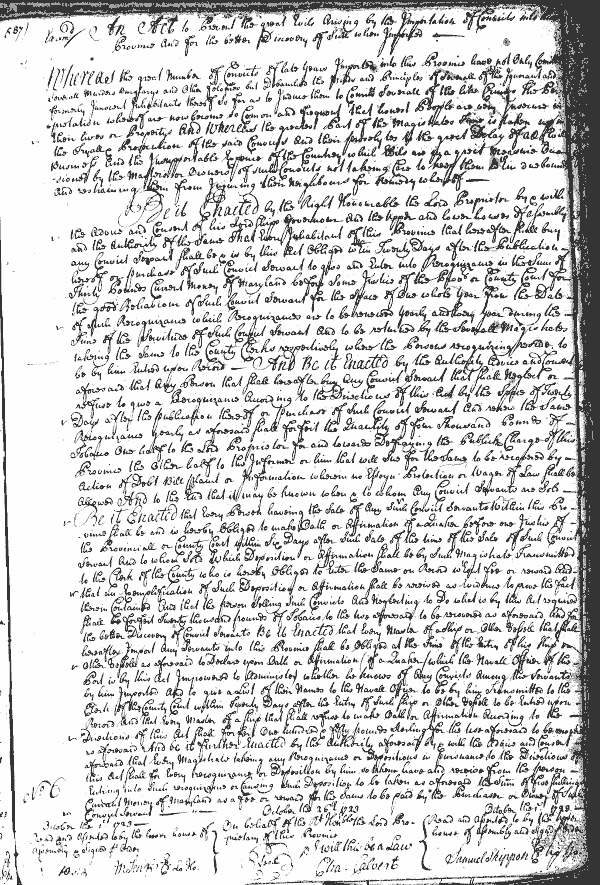 An Act to Prevent the great Evils Arising by the Importation of Convicts into this
Province And for the better Discovery of Such when Imported
Whereas the great Number of Convicts of late Years Imported into this Province have not Only Comitted
Severall Murders Burglarys and Other Felonies but debauched the Minds and Principles of Severall of the Ignorant and
formerly Innocent Inhabitants thereof So far as to Induce them to Comitt Severall of the like Crimes the
whereof are now become so Comon and frequent that honest People are very Insecure in
their lives or Property And Whereas the greatest Part of the Magistrates Time is taken up in
the Proportion of the said Convicts And their proselytes to the great Delay of all
Business And the Insupportable Expence of the Country which Evils are in a great measure
by the Masters or Owners of Such Convicts not taking Care to keep them
And restraining them from Injuring their Neighbours for Remedy whereof
Be it Enacted by the Right Honourable the Lord Proprietor by & with
the Advice and Consent of his Lordships Governour And the upper and lower houses of Assembly
and the Authority of the Same That Every Inhabitant of this Province that hereafter shall buy
any Convict Servant shall be & is by this Act Obliged within Twenty Days after the Publication
hereof or purchase of Such Convict Servant to give and Enter into Recognizance in the Sum of
Thirty Pounds Current Money of Maryland before Some Justice of the Provo or County Court for
the good Behaviour of Such Convict Servant for the Space of One whole Year from the Date
of Such Recognizance which Recognizances are to be renewed Yearly and every Year during the
Time of the Servitude of Such Convict Servant And to be returned by the Severall Magistrates
taking the Same to the County Clerks respectively where the Persons recognizing reside, to
be by him Entred upon Record And Be it Enacted by the Authority Advice and Consent
aforesaid that Any Person that shall hereafter buy Any Convict Servant that shall Neglect or
refuse to give a Recognizance According to the Directions of this Act by the Space of Twenty
Days after the publication thereof or purchase of Such Convict Servant And renew the Same
Recognizance yearly as aforesaid shall forfeit the Quantity of four Thousand Pounds of
Tobacco One half to the Lord Proprietor for and towards Defraying the Publick Charge of this
Province the Other half to the Informer or him that will Sue for the Same to be recovered by
Action of Debt Bill Plaint or Information wherein no Essoyn Protection or Wager of Law shall be
Allowed And to the End that it may be known when & to whom Any Convict Servants are Sold
Be it Enacted that Every Person having the Sale of Any Such Convict Servants Within this Pro
vince shall be and is hereby Obliged to make Oath or Affirmation if a Quaker before one Justice of
the Provinciall or County Court within Six Days after Such Sale of the time of the Sale of Such Convict
Servant And to whom Sold Which Deposition or Affirmation shall be by Such Magistrate Transmitted
to the Clerk of the County who is hereby Obliged to Enter the Same on Record without fee or reward And
that an Exemplification of Such Deposition or Affirmation shall be received as Evidence to prove the fact
therein Contained And that the person Selling Such Convicts And Neglecting to Do what is by this Act required
shall be forfeit Twenty thousand pounds of Tobacco to the use aforesaid to be recovered as aforesaid And for
the better Discovery of Convict Servants Be it Enacted that Every Master of a Ship or Other Vessell that shall
hereafter Import Any Servants into this Province shall be Obliged at the Time of the Entry of his Ship or
Other Vessell as aforesaid to declare upon Oath or Affirmation (if a Quaker) which the Navall Officer of the
Port is by this Act Impowered to Administer whether he knows of Any Convicts Among the Servants
by him Imported And to give a list of their Names to the Navall Officer to be by him Transmitted to the
Clerk of the County Court within Twenty Days after the Entry of Such Ship or Other Vessell to be Entred upon
Record And that Every Master of a Ship that shall refuse to make Oath or Affirmation According to the
Directions of this Act shall forfeit One hundred & fifty pounds sterling for the use aforesaid to be recovered
as aforesaid And be it further Enacted by the Authority aforesaid by & with the Advice and Consent
aforesaid that Every Magistrate taking any Recognizance or Depositions in pursuance to the Directions of
this Act shall for Every recognizance or Deposition by him so taken have and receive from the person
Entring into Such recognizance or causing Such Deposition to be taken as aforesaid the Sum of
Current Money of Maryland as a fee or reward for the Same to be paid by the Purchaser or Owner of Such
Convict Servant
October the 1723
Read and assented to by the lower house of
Assembly & Signed Order
October the 26th 1723
On behalf of the Rt Honble the Lord Pro
prietary of this Province
I will this be a Law
Cha: Calvert
October the 1723
Read and assented to by the upper
house of assembly and signed Order
Samuel Skippon